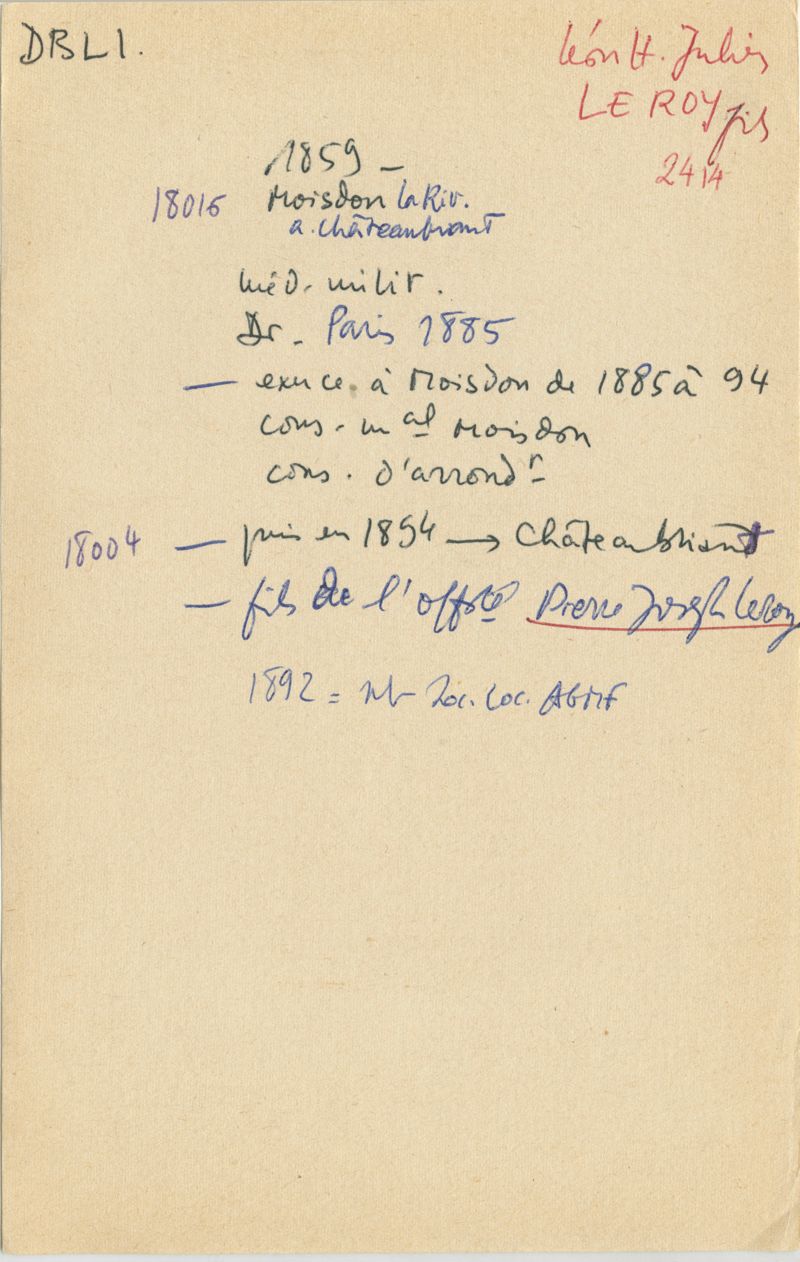 DBLI.
Léon H. Julien
LE ROY fils
2414
1859 _
18016 Moisdon la Riv.
a. Châteaubriant
méd. milit.
Dr _ Paris 1885
— exerce à Moisdon de 1885 à 94
cons. mal Moisdon
cons. d'arrondt
18004 — puis en 1894 → Châteaubriant
— fils de l'offsté Pierre Joseph Leroy
1892 = Mb Loc. AGMF